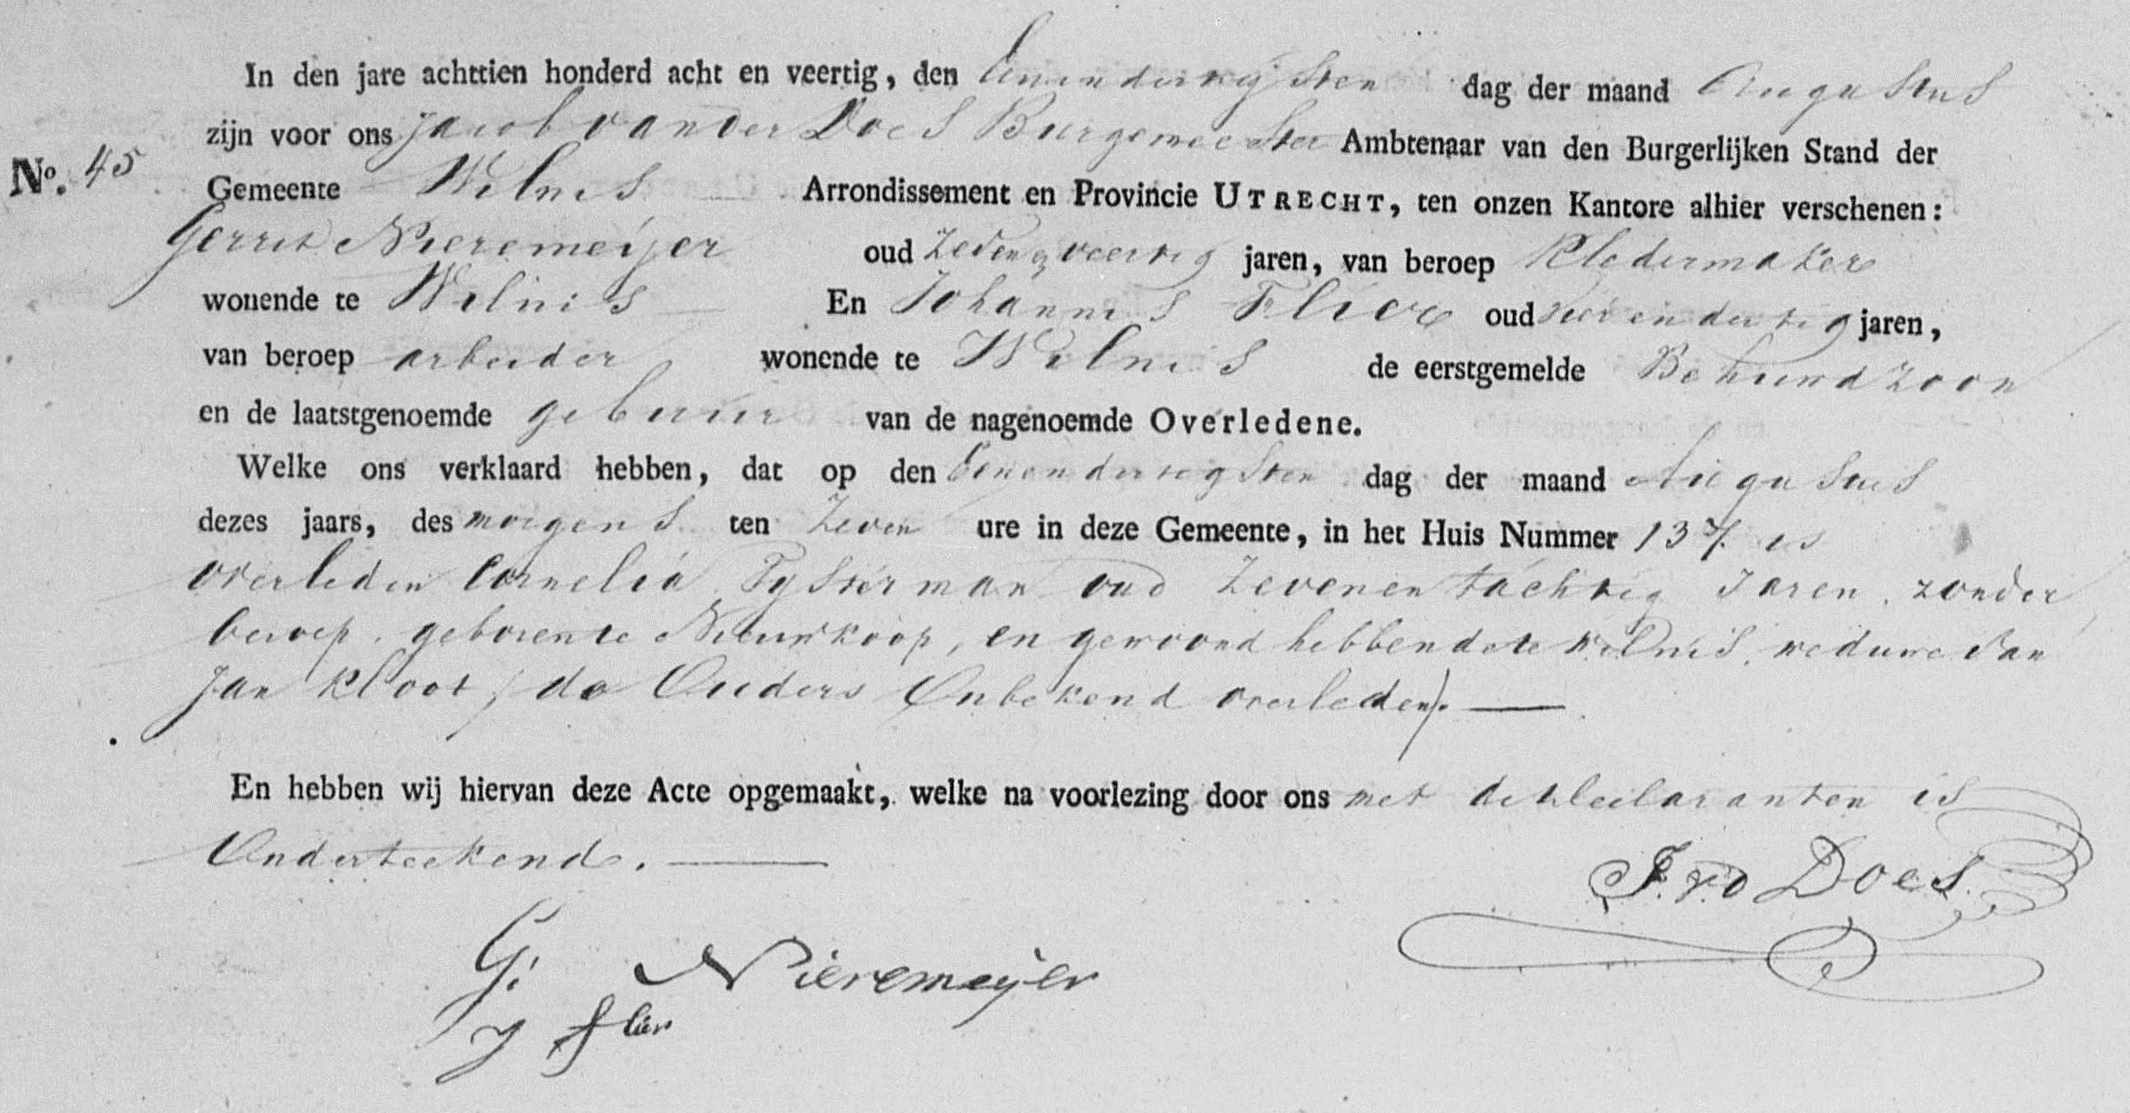 In den jare achttien honderd acht en veertig, den Eenendertigsten dag der maand Augustus
zijn voor ons Jacob van der Does Burgemeester Ambtenaar van den Burgerlijken Stand der
No. 45
Gemeente Wilnis Arrondissement en Provincie UTRECHT, ten onzen Kantore alhier verschenen:
Gerrit Nieremeijer oud zevenenveertig jaren, van beroep Kledermaker
wonende te Wilnis En Johannes oud vierendertig jaren,
van beroep arbeider wonende te Wilnis de eerstgemelde Behuwdzoon
en de laatstgenoemde gebuur van de nagenoemde Overledene.
Welke ons verklaard hebben, dat op den Eenendertigsten dag der maand Augustus
dezes jaars, des morgens ten Zeven ure in deze Gemeente, in het Huis Nummer 137. is
overleden Cornelia Tysterman oud Zevenentachtig Jaren, zonder
beroep, geboren te Nieuwkoop, en gewoond hebbende te Wilnis, weduwe van
Jan Kloot, (de Ouders Onbekend overleden). —
En hebben wij hiervan deze Acte opgemaakt, welke na voorlezing door ons met de Declaranten is
Onderteekend. —
J. v. d Does.
G. Nieremeijer
J